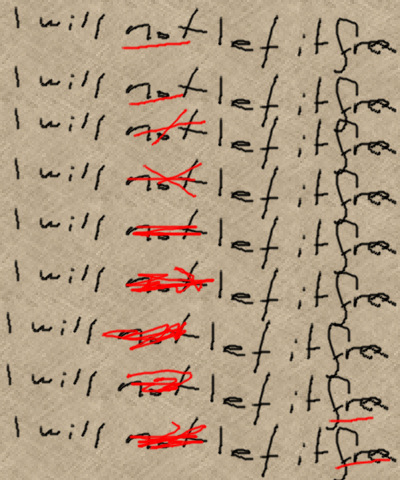 I will not let it free
I will not let it free
I will not let it free
I will not let it free
I will not let it free
I will not let it free
I will not let it free
I will not let it free
I will not let it free